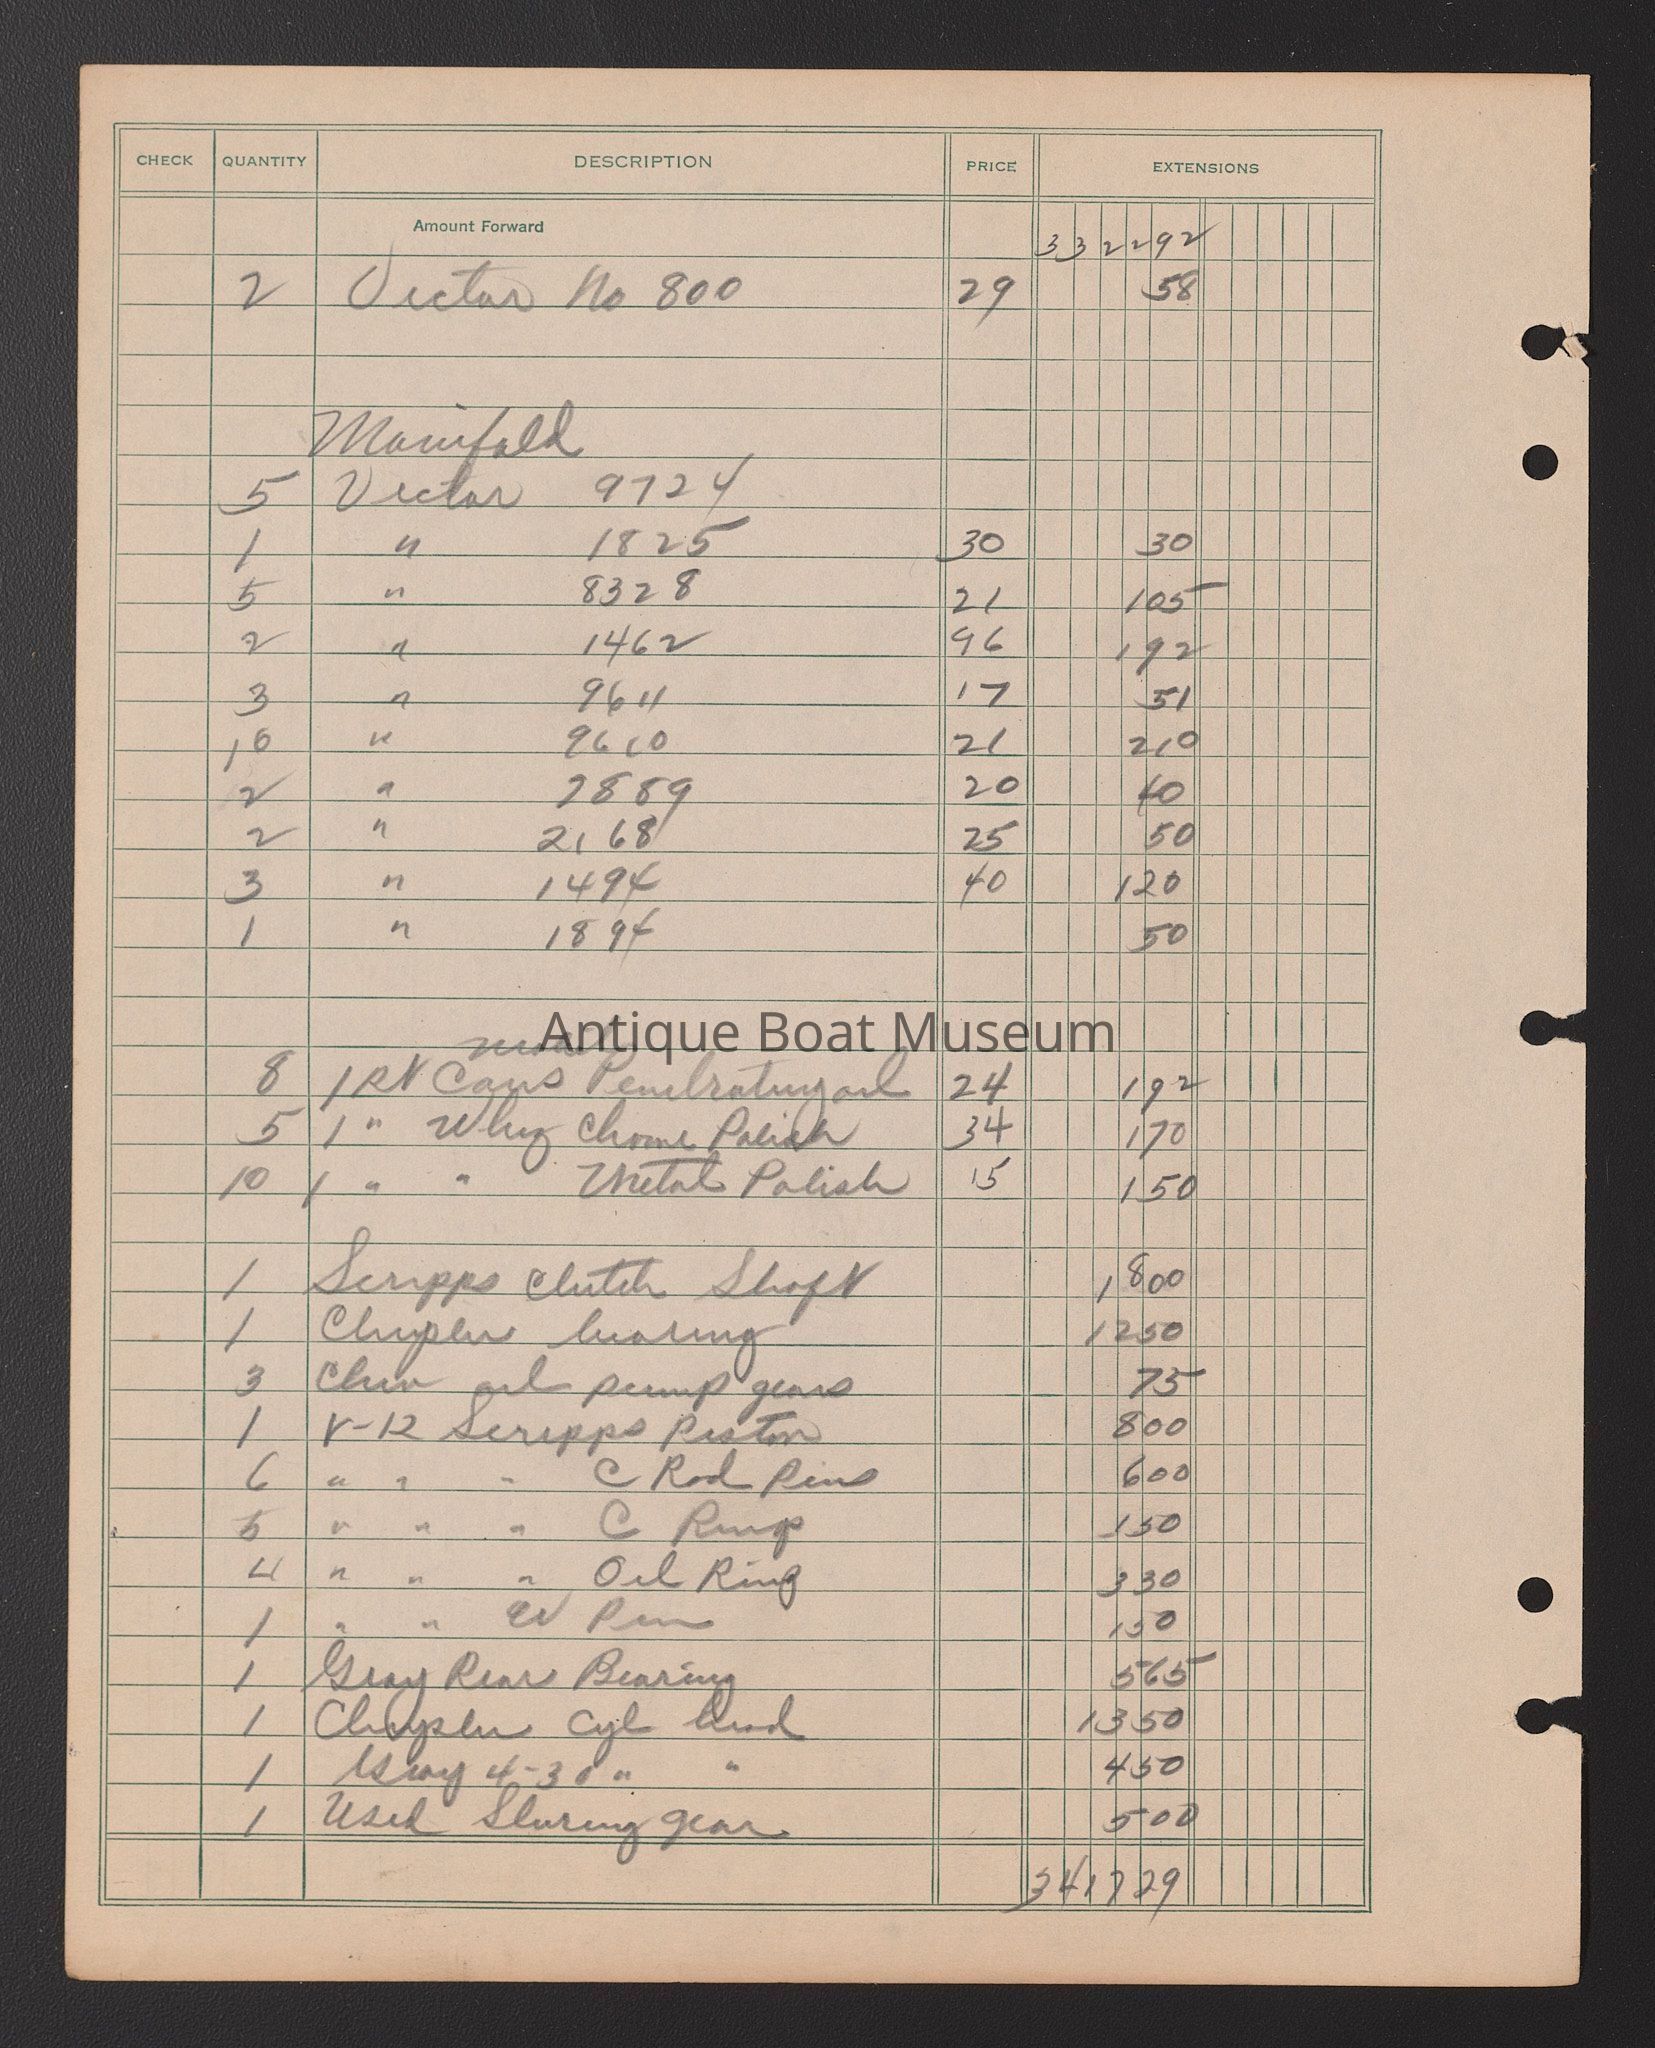 CHECK QUANTITY DESCRIPTION PRICE EXTENSIONS
Amount Forward 332292
2 Victor No 800 29 58
Manifold
5 Victor 9724
1 " 1825 30 30
5 " 8328 21 105
2 " 1462 96 192
3 " 9611 17 51
10 " 9610 21 210
2 " 7889 20 40
2 " 2168 25 50
3 " 1494 40 120
1 " 1894 50
Antique Boat Museum
8 1 Pt Cans Penetrating oil 24 192
5 1 " Whiz Chrome Polish 34 170
10 1 " " Metal Polish 15 150
1 Scripps Clutch Shaft 1800
1 Chrysler bearing 1250
3 Chev oil pump gears 75
1 V-12 Scripps Piston 800
6 " " " C Rod Pins 600
5 " " " C Rings 150
4 " " " Oil Ring 330
1 " " W Pin 150
1 Gray Rear Bearing 565
1 Chrysler Cyl head 1350
1 Gray 4-30 " " 450
1 Used Stering gear 500
341729